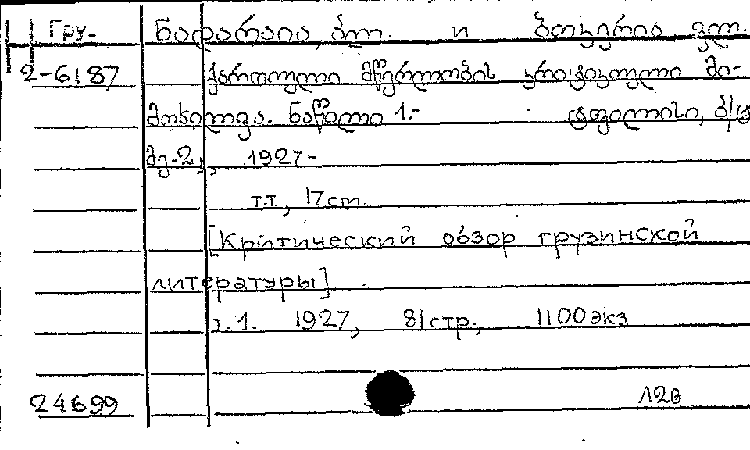 Гру. ნადარაია, ბლ. и ბოცერია ვლ.
2-6187 ქართული მწერლობის კრიტიკული მი-
მოხილვა. ნაწილი 1.- ტფილისი,
1927-
т.т., 17см.
[Критический обзор грузинской
литературы].
т.1. 1927, 81стр., 1100экз
24699